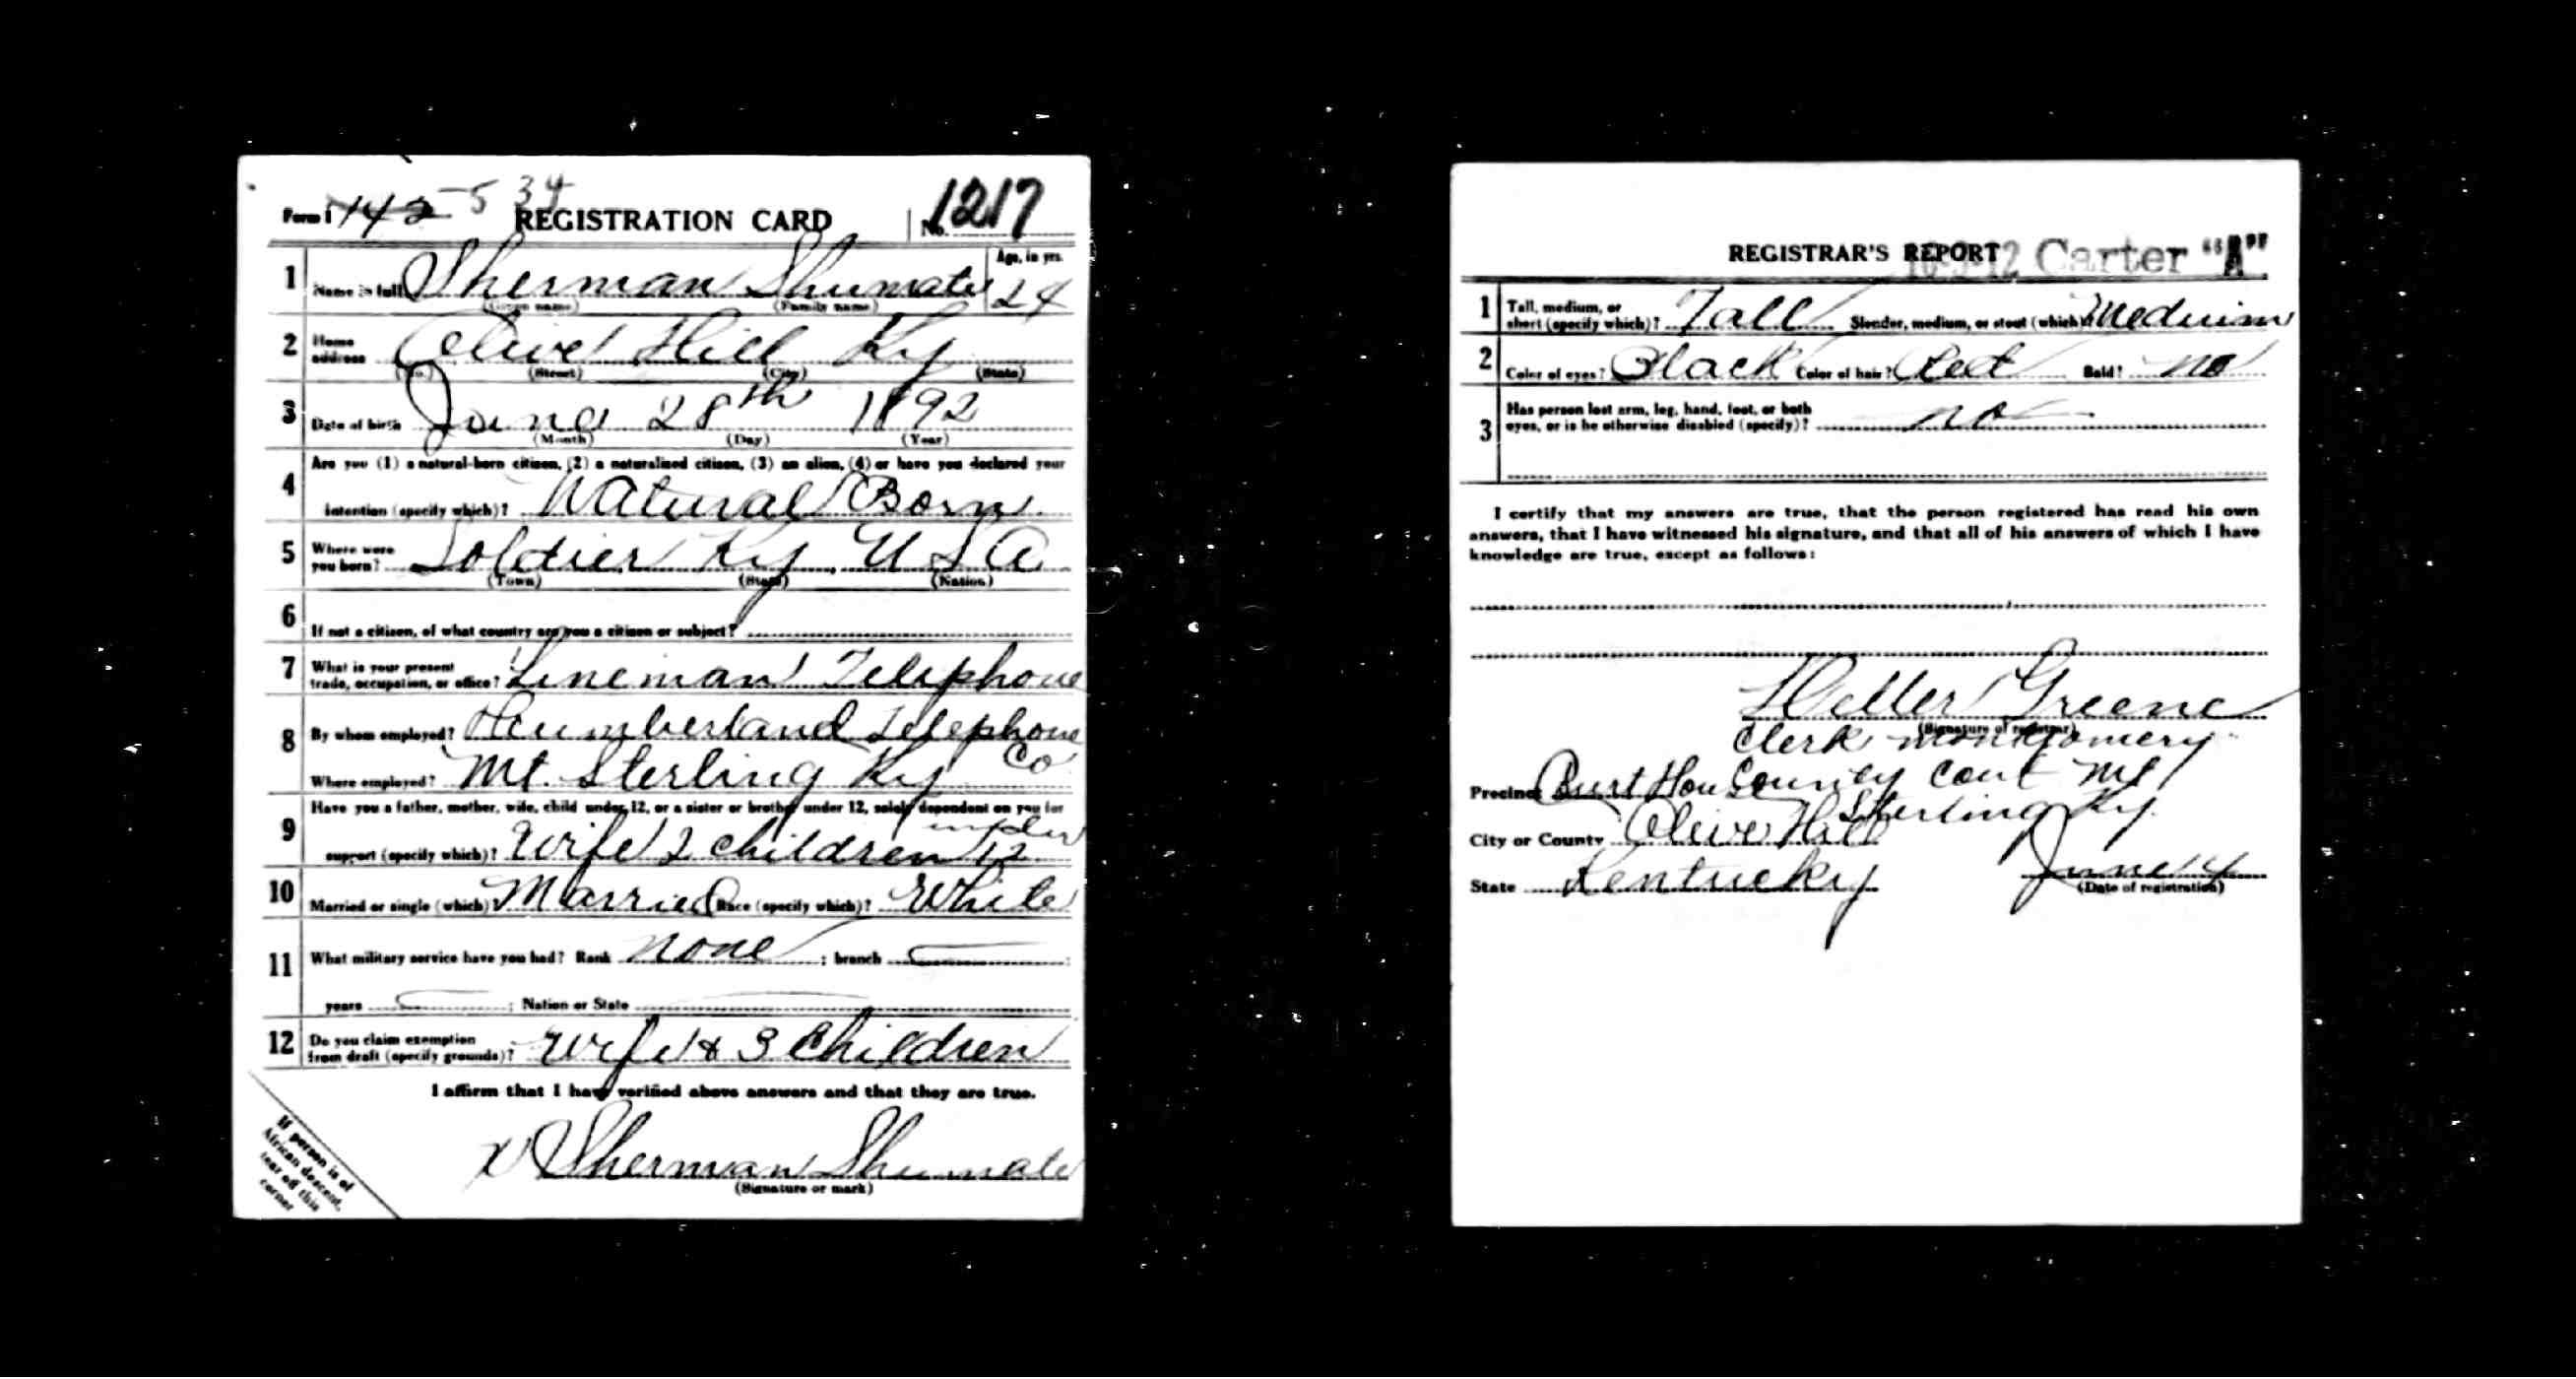 Form 1 142 - 534 REGISTRATION CARD No. 1217
1 Name in full Sherman Shumate Age, in yrs. 24
(Given name) (Family name)
2 Home address Olive Hill Ky
(No.) (Street) (City) (State)
3 Date of birth June 28th 1892
(Month) (Day) (Year)
4 Are you (1) a natural-born citizen, (2) a naturalized citizen, (3) an alien, (4) or have you declared your
intention (specify which)? Natural Born
5 Where were you born? Soldier Ky, U S A
(Town) (State) (Nation)
6 If not a citizen, of what country are you a citizen or subject?
7 What is your present trade, occupation, or office? Lineman Telephone
8 By whom employed? Cumberland Telephone Co
Where employed? Mt. Sterling Ky
9 Have you a father, mother, wife, child under 12, or a sister or brother under 12, solely dependent on you for
support (specify which)? Wife 2 children under 12
10 Married or single (which)? Married Race (specify which)? White
11 What military service have you had? Rank none ; branch
years ; Nation or State
12 Do you claim exemption from draft (specify grounds)? Wife & 3 Children
I affirm that I have verified above answers and that they are true.
x Sherman Shumate
(Signature or mark)
If person is of
African descent,
tear off this
corner
REGISTRAR'S REPORT Carter "A"
1 Tall, medium, or short (specify which)? Tall Slender, medium, or stout (which)? Medium
2 Color of eyes? Black Color of hair? Red Bald? no
3 Has person lost arm, leg, hand, foot, or both
eyes, or is he otherwise disabled (specify)? no
I certify that my answers are true, that the person registered has read his own
answers, that I have witnessed his signature, and that all of his answers of which I have
knowledge are true, except as follows:
Greene
(Signature of registrar)
Clerk Montgomery
County Court Mt
Sterling Ky.
Precinct Court Hou
City or County Olive Hill
State Kentucky June 4
(Date of registration)